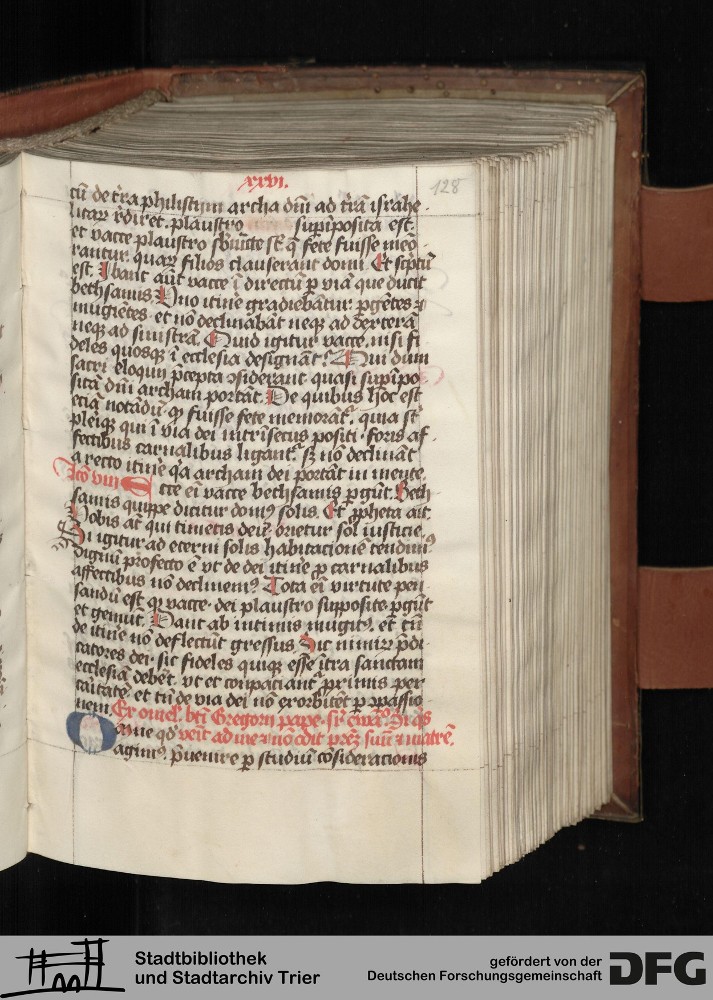 xxvi.
128
cū de t̄ra philistijm archa dn̄i ad t̄rā israhe
litaꝝ r̄diret. plaustro suꝑīposita est.
et vacce plaustro sb̄iūcte st̄ q̄ fete fuisse meō
rantur. quaꝝ filios clauserant domi. Et sc̄ptū
est. Ibant aūt vacce ī directū ꝑ viā que ducit
bethsamis. Uno itin̄e gradiebātur ꝑgētes ⁊
mugiētes. et nō declinabāt neqꝫ ad dexterā
neqꝫ ad sinistrā. Quid igitur vacce. nisi fi
deles quosqꝫ ī ecclesia designāt? Qui dum
sacri eloquii p̄cepta ↄsiderant quasi suꝑīpo
sitā dn̄i archam portāt. De quibus h̊c est
eciā notādū. ꝙ fuisse fete memorāt᷑. quia st̄
pleriqꝫ qui ī via dei intrīsecus positi. foris af
fectibus carnalibus ligant᷑. sꝫ nō declināt
a recto itin̄e q̄a archam dei portāt in mente.
lcō viii Ecce em̄ vacce bethsamis ꝑgūt. Beth
samis quippe dicitur domꝰ solis. Et ꝓpheta ait.
Vobis at̄ qui timetis deū. orietur sol iusticie.
Si igitur ad eterni solis habitacionē tendimꝰ
dignū profecto ē vt de dei itin̄e ꝑ carnalibus
affectibus nō declinemꝰ. Tota em̄ virtute pen
sandū est. ꝙ vacce dei plaustro supposite ꝑgūt
et gemūt. Dant ab intimis mugitꝰ. et tn̄
de itin̄e nō deflectūt gressus. Sic nimiꝝ p̄di
catores dei. sic fideles quiqꝫ esse ītra sanctam
ecclesiā debēt. vt et cōpaciant᷑ ꝓximis per
caritatē. et tn̄ de via dei nō exorbitēt ꝑ ↄpassio
nem. Ex omel. bt̄i Gregorii pape. sr̄ ewā. Si q̄s
venit ad me ⁊ nō odit pr̄eꝫ suū ⁊ matrē.
agimꝰ. ꝑuenire ꝑ studiū cōsideracionis
Stadtbibliothek
und Stadtarchiv Trier
gefördert von der
Deutschen Forschungsgemeinschaft
DFG